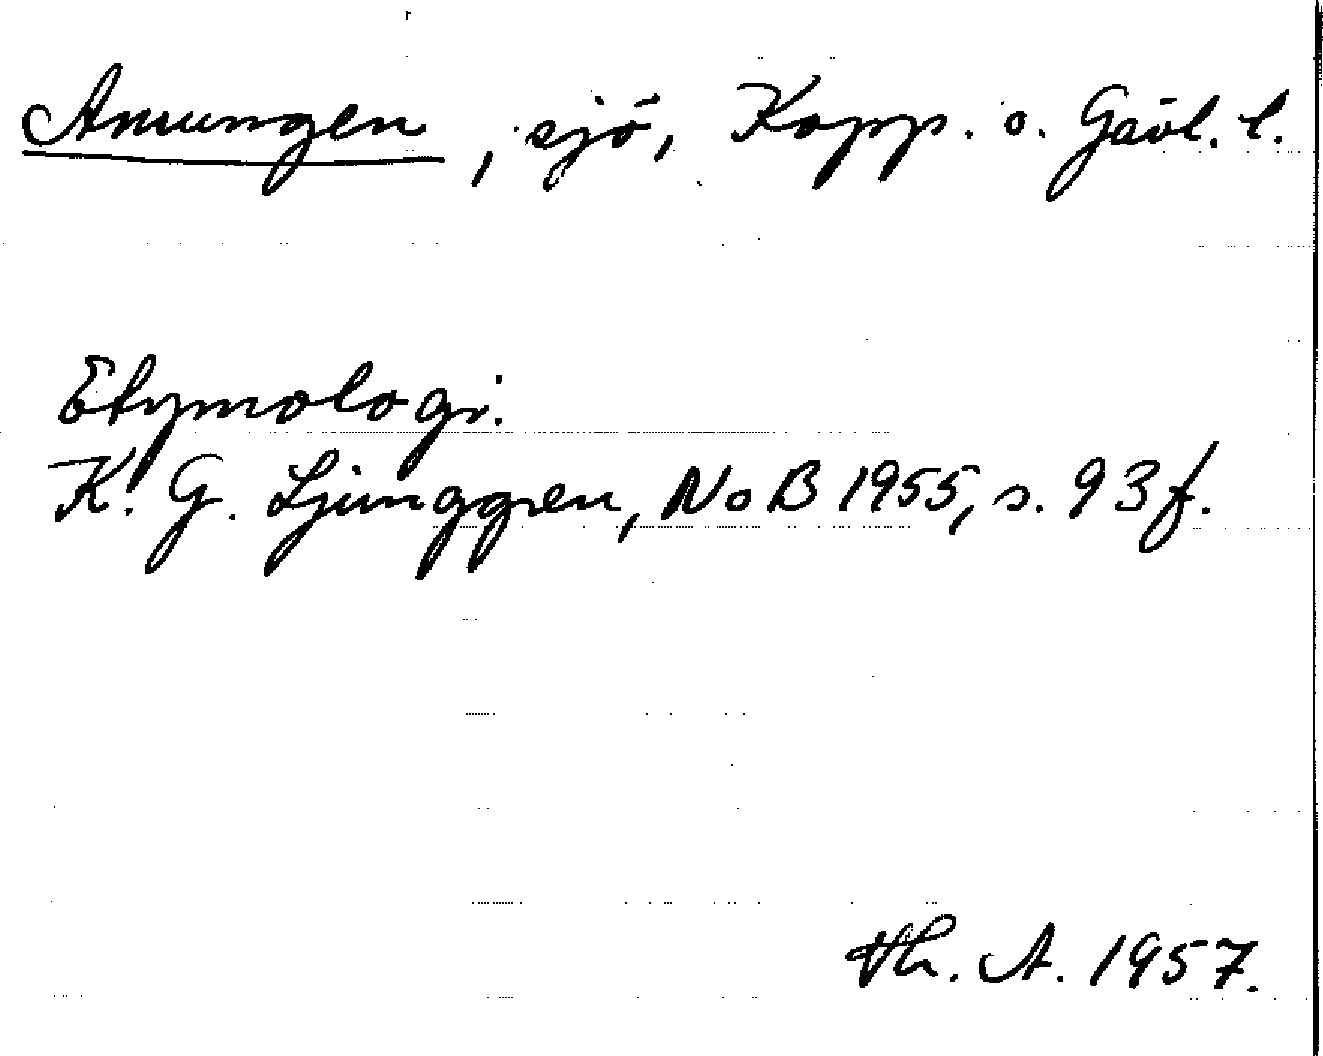 Amungen, sjö, Kopp. o. Gävl. l.
Etymologi.
K. G. Ljunggren, NoB 1955, s. 93f.
Th. A. 1957.